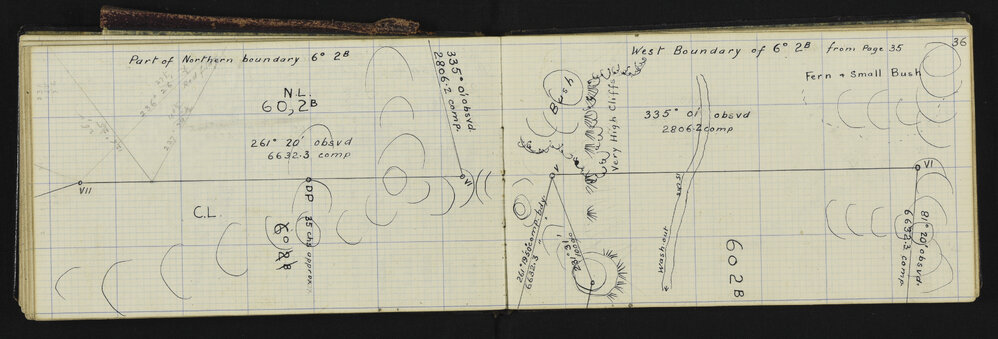 Part of Northern boundary 6° 2B
N.L.
60,2B
335° 0' obsvd
2806.2 comp.
261° 20' obsvd
6632.3 comp
VII
DP
VI
C.L.
35 chs approx.
6028
36
West Boundary of 6° 2B from Page 35
Fern + Small Bush
Very High Cliffs
335° 01' obsvd
2806.2 comp
VI
V
15 lks
261° 19' 50" comp bdy.
6632.3 "
231° 31'
wash-out
602B
81° 20' obsvd.
6632.3 comp.